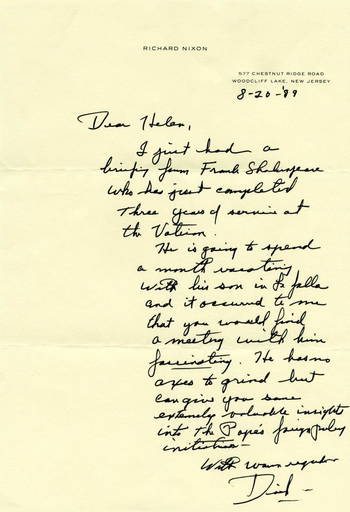 RICHARD NIXON
577 CHESTNUT RIDGE ROAD
WOODCLIFF LAKE, NEW JERSEY
8-20-'89
Dear Helen,
I just had a
briefing from Frank Shakespeare
who has just completed
three years of service at
the Vatican.
He is going to spend
a month vacationing
with his son in La Jolla
and it occurred to me
that you would find
a meeting with him
fascinating. He has no
axes to grind but
can give you some
extremely valuable insights
into the Pope's foreign policy
initiatives -
With warm regards
Dick -